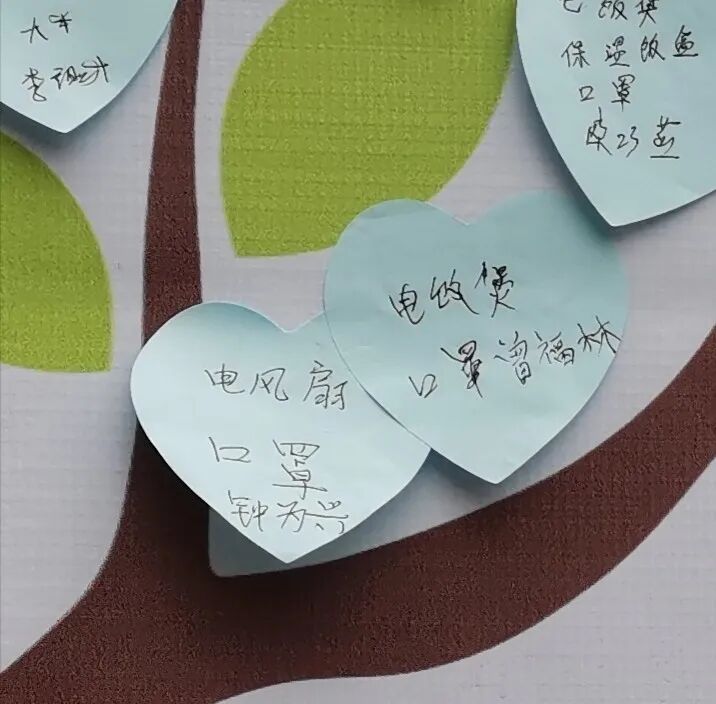 大米
电饭煲
保温饭盒
口罩
电饭煲
口罩曾福林
电风扇
口罩
钟为兴